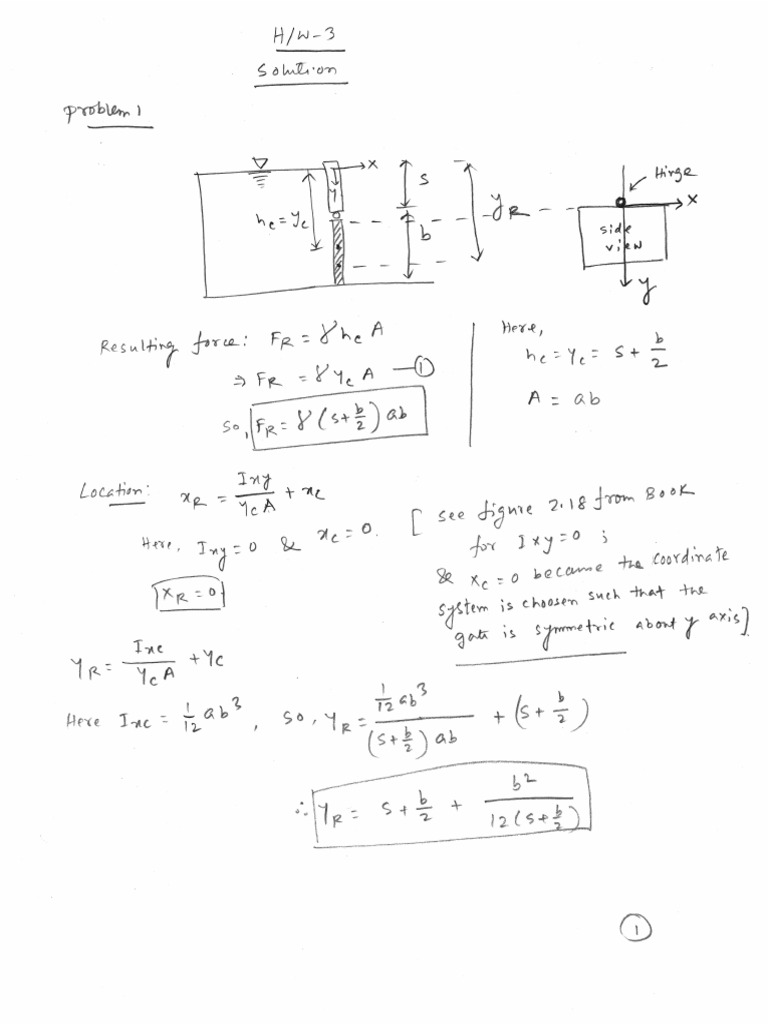 H/W-3
Solution
Problem 1
x
y
h_c = y_c
s
b
y_R
Hinge
x
side
view
y
Resulting force: F_R = γ h_c A
⇒ F_R = γ y_c A —①
So, F_R = γ (s + b/2) ab
Here,
h_c = y_c = s + b/2
A = ab
Location: x_R = I_xy / (y_c A) + x_c
Here, I_xy = 0 & x_c = 0.
x_R = 0
[ see figure 2.18 from Book
for I_xy = 0 ;
& x_c = 0 because the coordinate
system is choosen such that the
gate is symmetric about y axis]
y_R = I_xc / (y_c A) + y_c
Here I_xc = 1/12 ab³, so, y_R = (1/12 ab³) / ((s + b/2) ab) + (s + b/2)
∴ y_R = s + b/2 + b² / (12 (s + b/2))
①